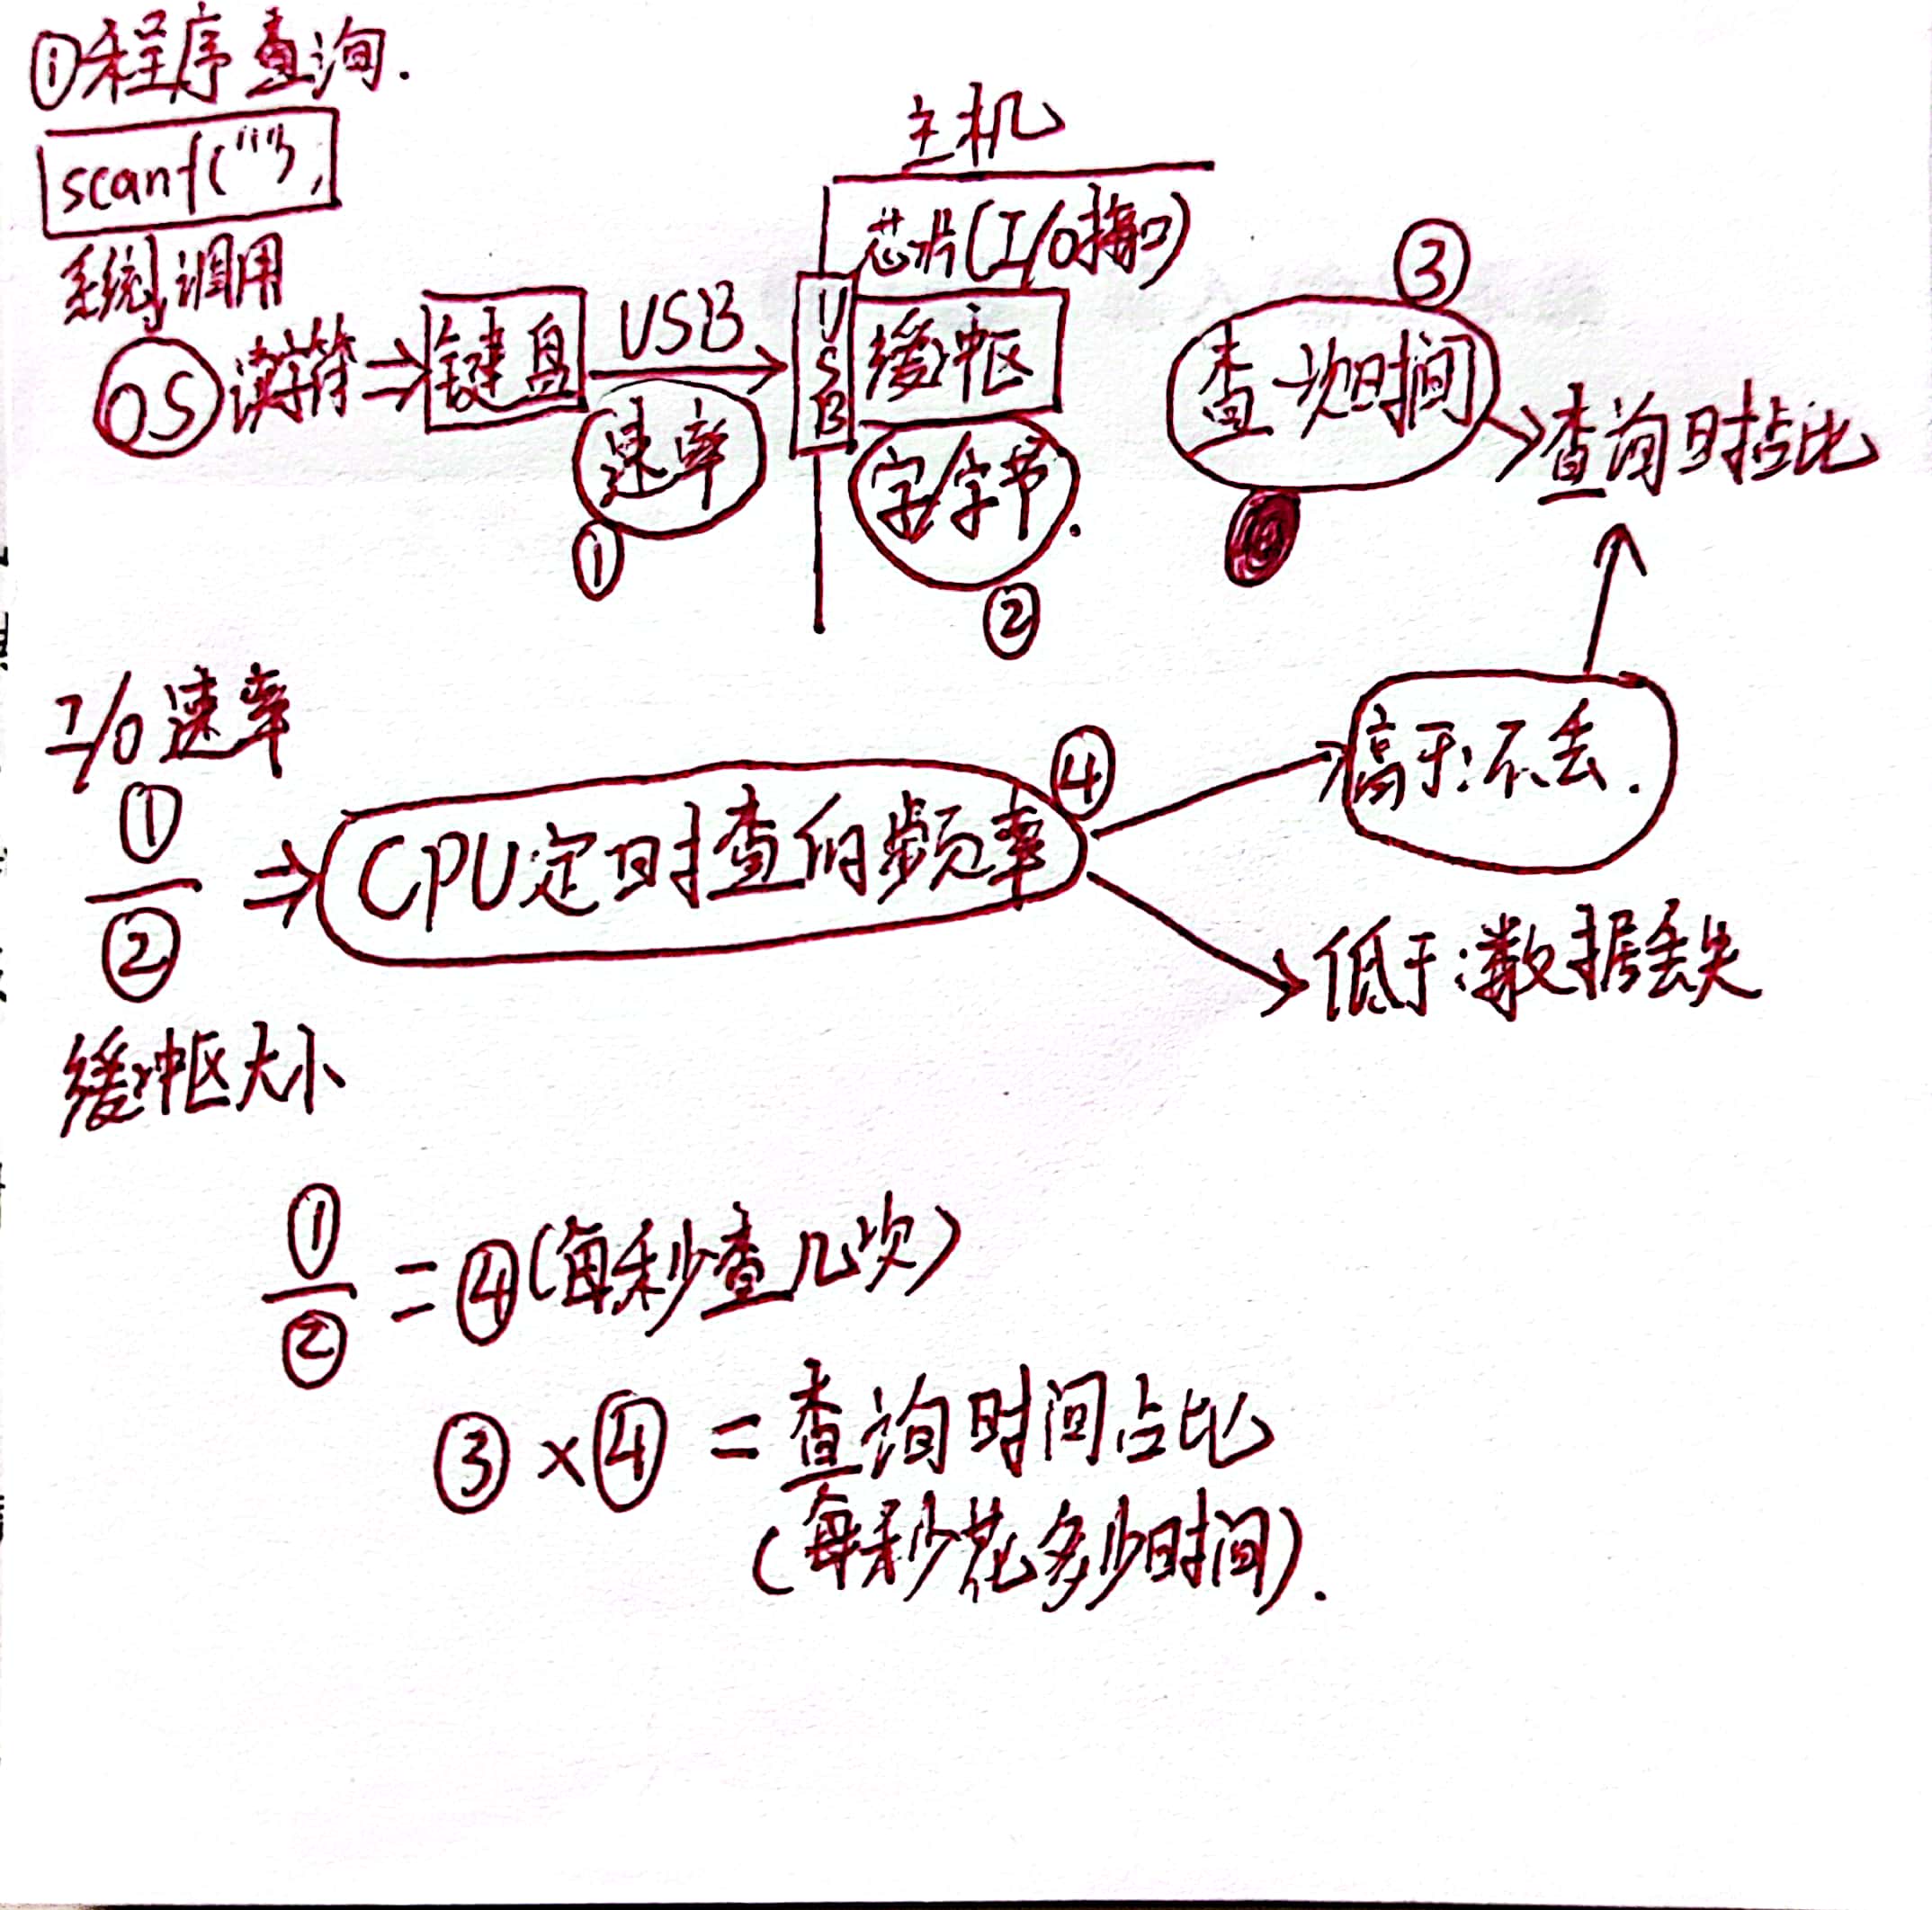 ①程序查询.
scanf("");
系统调用
OS 读字符⇒键盘
USB
速率
①
主机
芯片(I/O接口)
USB
缓冲区
字/字节.
②
③
查一次时间
→查询时占比
I/O速率
①
②
缓冲区大小
⇒CPU定时查询频率
④
高于:不丢.
低于:数据丢失
①/② = ④(每秒查几次)
③×④ = 查询时间占比
(每秒花多少时间).